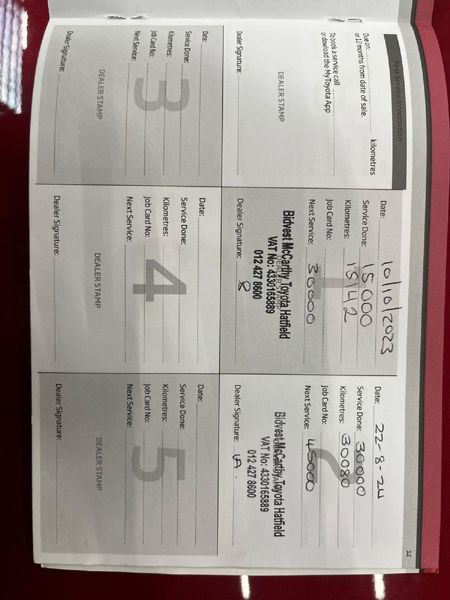 First Service Information
Due on: kilometres
or 12 months from date of sale.
To book a service call
or download the MyToyota App
DEALER STAMP
Dealer Signature:
1
Date: 10/10/2023
Service Done: 15 000
Kilometres: 15142
Job Card No:
Next Service: 30000
Bidvest McCarthy Toyota Hatfield
VAT No: 4330165889
012 427 8600
Dealer Signature:
2
Date: 22-8-24
Service Done: 30000
Kilometres: 30080
Job Card No:
Next Service: 45000
Bidvest McCarthy Toyota Hatfield
VAT No: 4330165889
012 427 8600
Dealer Signature:
3
Date:
Service Done:
Kilometres:
Job Card No:
Next Service:
DEALER STAMP
Dealer Signature:
4
Date:
Service Done:
Kilometres:
Job Card No:
Next Service:
DEALER STAMP
Dealer Signature:
5
Date:
Service Done:
Kilometres:
Job Card No:
Next Service:
DEALER STAMP
Dealer Signature:
12